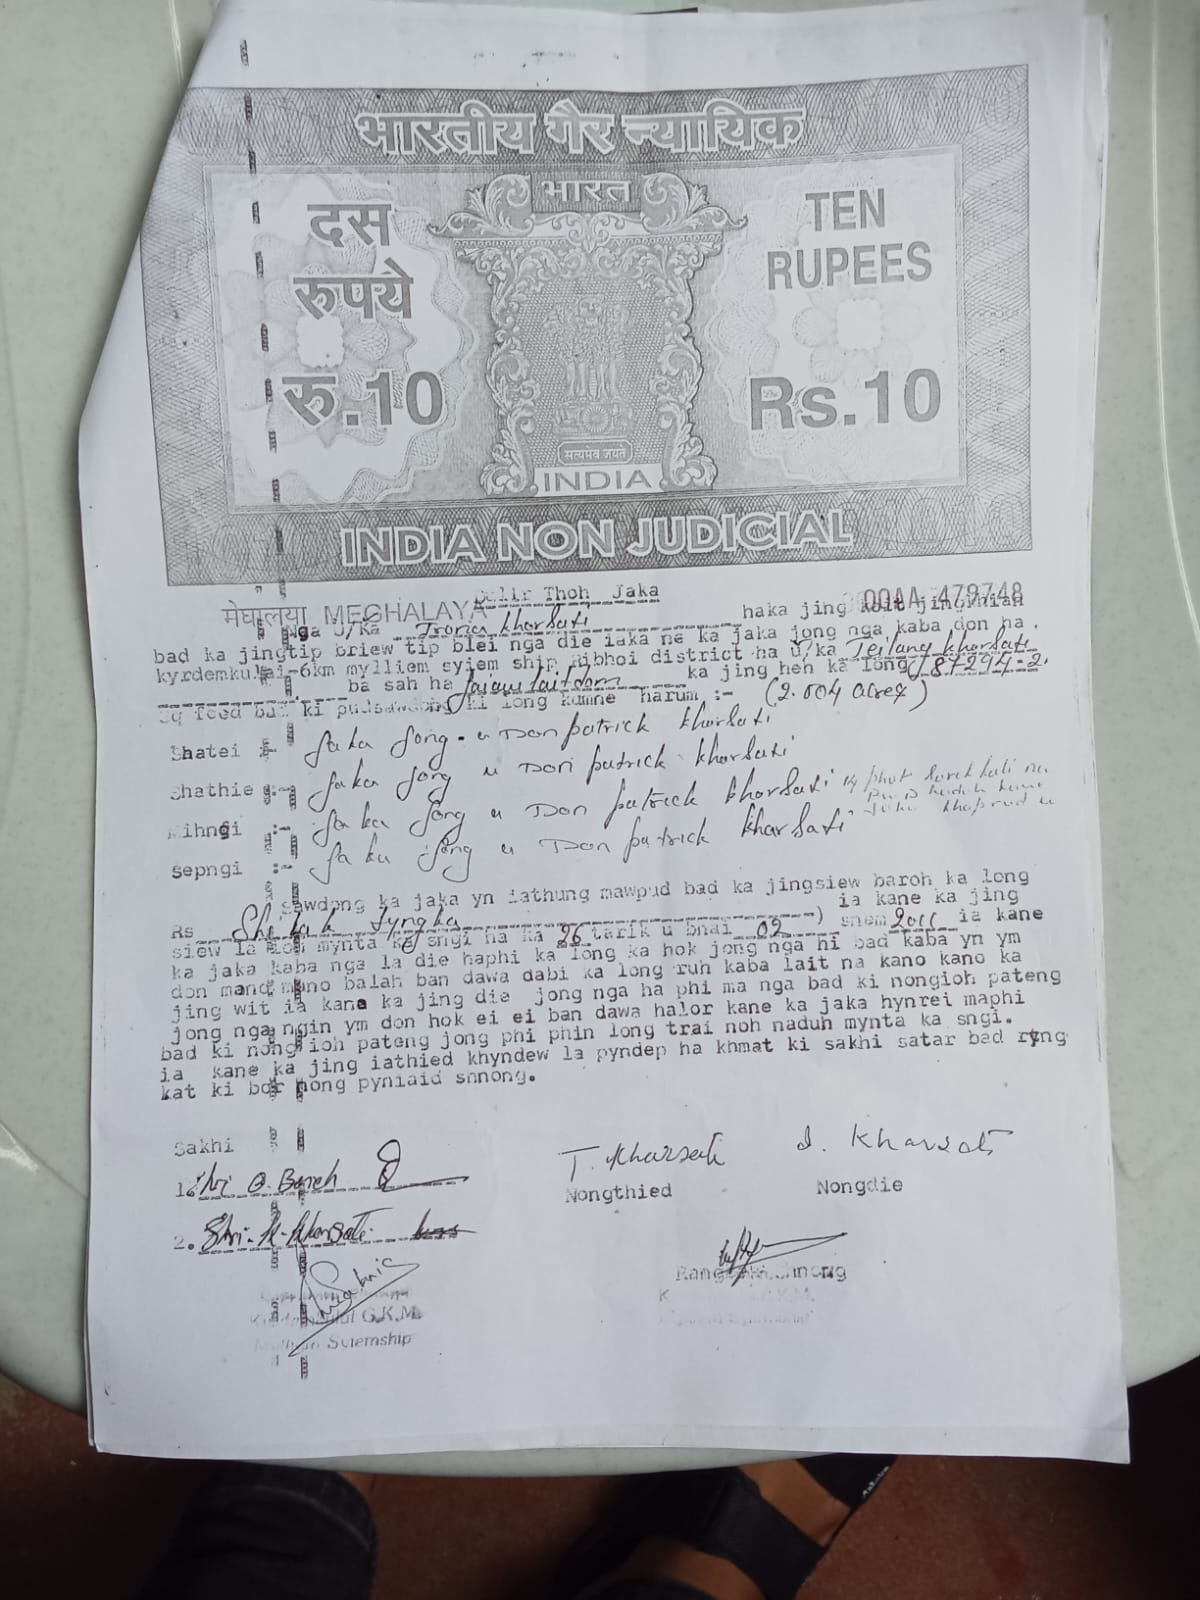 भारतीय गैर न्यायिक
भारत
दस
रुपये
रु.10
TEN
RUPEES
Rs.10
सत्यमेव जयते
INDIA
INDIA NON JUDICIAL
मेघालया MEGHALAYA
00AA 479748
Thoh Jaka
Nga U/Ka Kharsati haka jing koit jingkhiah
bad ka jingtip briew tip blei nga die iaka ne ka jaka jong nga kaba don ha
6km mylliem syiem ship Ribhoi district ha u/ka Teilang Kharsati
ba sah ha Jaiaw Laitdom ka jing heh ka long 87294.2
Sq feed bad ki pudsawdong ki long kumne harum :- (2.004 acres)
Shatei :- Jaka Jong u Don patrick Kharsati
Shathie :- Jaka Jong u Don patrick Kharsati
Mihngi :- Jaka Jong u Don patrick Kharsati
Sepngi :- Jaka Jong u Don patrick Kharsati
sawdong ka jaka yn iathung mawpud bad ka jingsiew baroh ka long
Rs ia kane ka jing
siew la ioh mynta ka sngi ha ka 26 tarik u bnai 02 ) snem 2011 ia kane
ka jaka kaba nga la die haphi ka long ka hok jong nga hi bad kaba yn ym
don mano mano balah ban dawa dabi ka long ruh kaba lait na kano kano ka
jing wit ia kane ka jing die jong nga ha phi ma nga bad ki nongioh pateng
jong nga ngin ym don hok ei ei ban dawa halor kane ka jaka hynrei maphi
bad ki nongioh pateng jong phi phin long trai noh naduh mynta ka sngi.
ia kane ka jing iathied khyndew la pyndep ha khmat ki sakhi satar bad ryng
kat ki bor nong pyniaid shnong.
Sakhi
1. Shri
T. Kharsati
Nongthied
I. Kharsati
Nongdie
2. Shri. Kharsati
G.K.M.
Syiemship